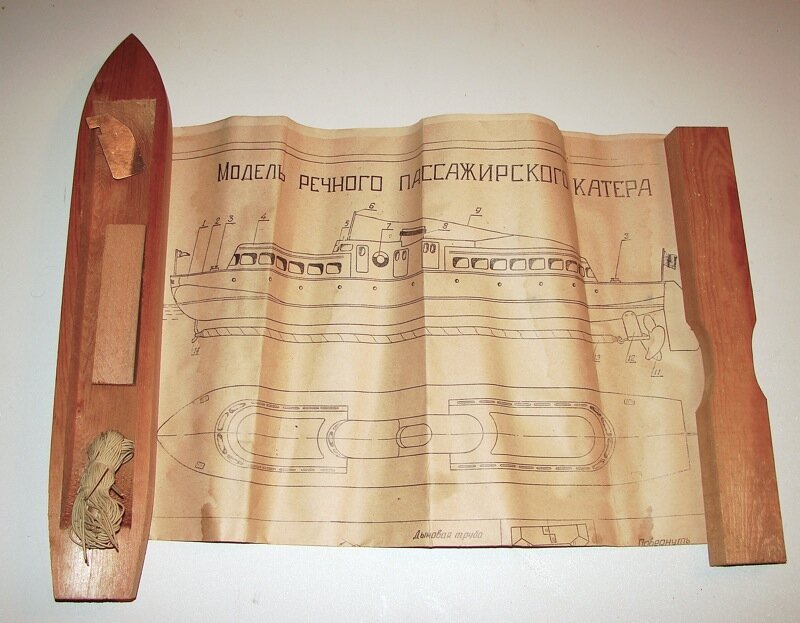 Модель речного пассажирского катера
1 2 3 4 5 6 7 8 9 3
14 13 12 11
Дымовая труба
Повернуть